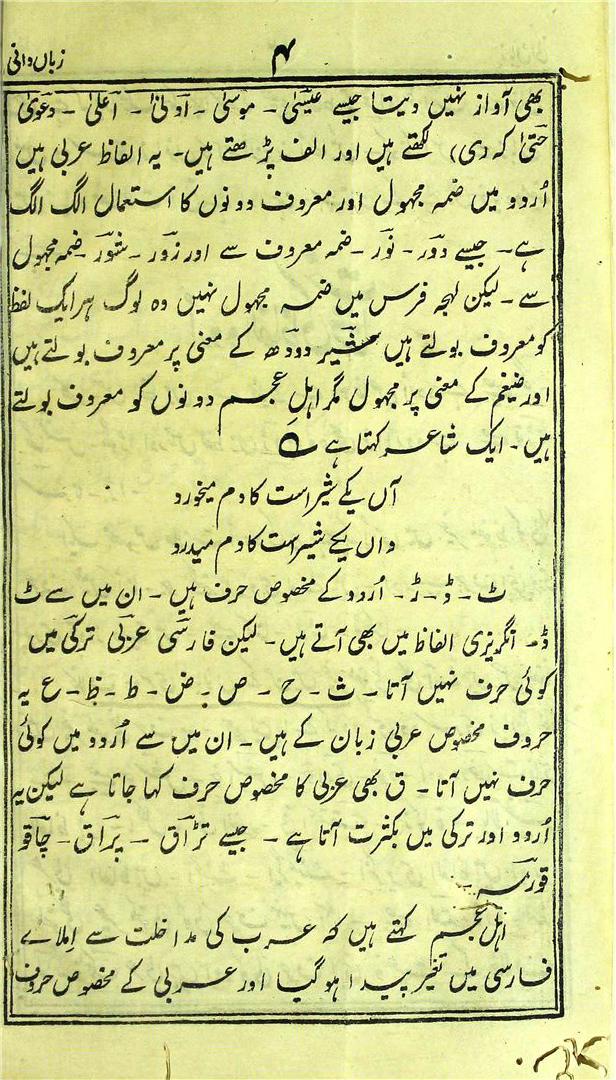 زباں دانی
۴
بھی آواز نہیں دیتا جیسے عیسٰی ۔ موسٰی ۔ اَولٰی ۔ اعلٰی ۔ دعوٰی
حتّٰی کہ (ی) لکھتے ہیں اور الف پڑھتے ہیں۔ یہ الفاظ عربی ہیں
اُردو میں ضمہ مجہول اور معروف دونوں کا استعمال الگ الگ
ہے۔ جیسے دوٗر ۔ نوٗر ۔ ضمہ معروف سے اور زور ۔ شور ۔ ضمہ مجہول
سے ۔ لیکن لہجہ فرس میں ضمہ مجہول نہیں وہ لوگ ہر ایک لفظ
کو معروف بولتے ہیں شیر دودھ کے معنی پر معروف بولتے ہیں
اور ضیغم کے معنی پر مجہول مگر اہلِ عجم دونوں کو معروف بولتے
ہیں ۔ ایک شاعر کہتا ہے ؎
آں یکے شیر است کادم میخورد
واں یکے شیر است کادم میدرد
ٹ ۔ ڈ ۔ ڑ ۔ اُردو کے مخصوص حرف ہیں ۔ ان میں سے ٹ
ڈ۔ انگریزی الفاظ میں بھی آتے ہیں ۔ لیکن فارسی عربی ترکی میں
کوئی حرف نہیں آتا ۔ ث ۔ ح ۔ ص ۔ ض ۔ ط ۔ ظ ۔ ع یہ
حروف مخصوص عربی زبان کے ہیں ۔ ان میں سے اُردو میں کوئی
حرف نہیں آتا ۔ ق بھی عربی کا مخصوص حرف کہا جاتا ہے لیکن یہ
اُردو اور ترکی میں بکثرت آتا ہے ۔ جیسے تڑاق ۔ پراق ۔ چاقو
قورمہ ۔
اہلِ عجم کہتے ہیں کہ عرب کی مداخلت سے اِملائے
فارسی میں تغیر پیدا ہو گیا اور عربی کے مخصوص حروف